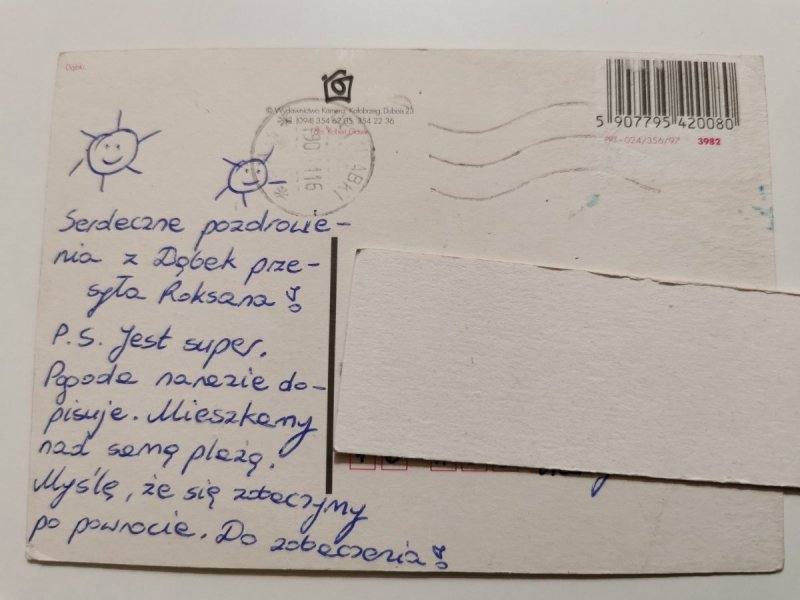 Dąbki
© Wydawnictwo Kamera, Kołobrzeg, Dubois 23
tel. (094) 354 62 05, 354 22 36
5 907795 420080
PRL-024/356/97 3982
Serdeczne pozdrowie-
nia z Dąbek prze-
syła Roksana!
P.S. Jest super.
Pogoda narazie do-
pisuje. Mieszkamy
nad samą plażą.
Myślę, że się zobaczymy
po powrocie. Do zobaczenia!